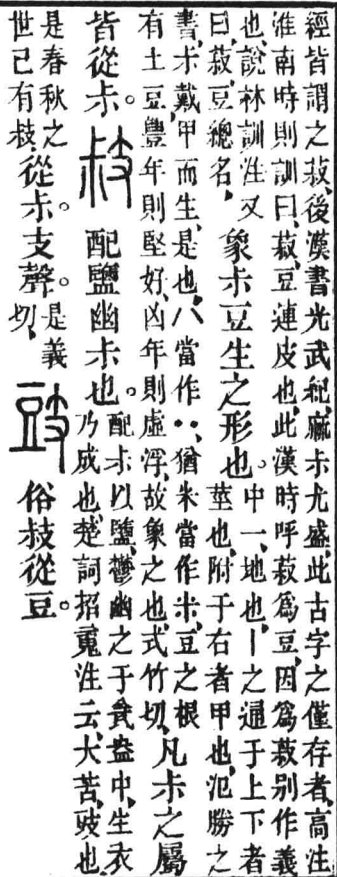 經皆謂之菽、後漢書光武紀、麻尗尤盛、此古字之僅存者、高注
淮南時則訓曰、菽、豆連皮也、此漢時呼菽爲豆、因爲菽別作義
也、說林訓注又
曰、菽、豆總名、
象尗豆生之形也。
中一、地也、丨之通于上下者
莖也、附于右者甲也、氾勝之
書、尗戴甲而生、是也、八當作、、猶朱當作米、豆之根
有土豆、豐年則堅好、凶年則虛浮、故象之也、式竹切、
凡尗之屬
皆從尗。
敊
配鹽幽尗也。
配尗以鹽、鬱幽之于瓮盎中、生衣
乃成也、楚詞招䰟注云、大苦、豉也、
是春秋之
世己有敊、
從尗。支聲。
是義
切、
豉
俗敊從豆。